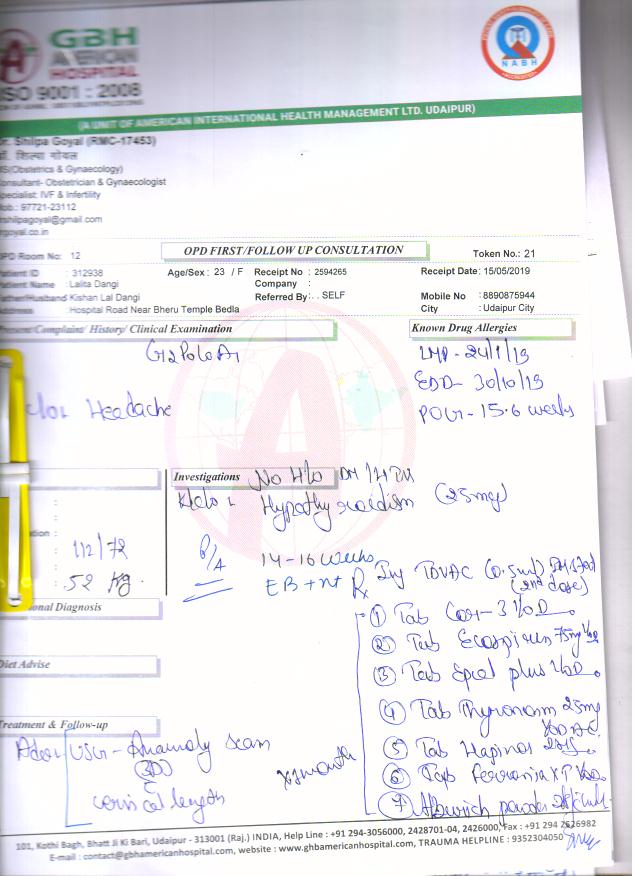 GBH
AMERICAN
HOSPITAL
ISO 9001 : 2008
NABH
(A UNIT OF AMERICAN INTERNATIONAL HEALTH MANAGEMENT LTD. UDAIPUR)
Dr. Shilpa Goyal (RMC-17453)
डॉ. शिल्पा गोयल
MS(Obstetrics & Gynaecology)
Consultant- Obstetrician & Gynaecologist
Specialist: IVF & Infertility
Mob.: 97721-23112
rshilpagoyal@gmail.com
rgoyal.co.in
OPD Room No: 12
OPD FIRST/FOLLOW UP CONSULTATION
Token No.: 21
Patient ID : 312938 Age/Sex : 23 / F Receipt No : 2594265 Receipt Date: 15/05/2019
Patient Name : Lalita Dangi Company :
Father/Husband Kishan Lal Dangi Referred By : . . SELF Mobile No : 8890875944
Address : Hospital Road Near Bheru Temple Bedla City : Udaipur City
Present Complaint/ History/ Clinical Examination
Known Drug Allergies
G2P0L0A1
LMP - 24/1/19
EDD - 30/10/19
POG - 15.6 weeks
c/o Headache
Investigations No H/o DM/HTN
K/c/o Hypothyroidism (25mg)
112/72
52 Kg.
P/A 14-16 weeks
EB + nt
Rx Inj TDVAC (0.5ml) IM stat
(2nd dose)
① Tab Cor-3 1/OD
② Tab Ecosprin 75mg
③ Tab Spel plus 1/OD
④ Tab Thyronorm 25mg
1/OD AC
⑤ Tab
⑥ Tab Ferronia XT 1/OD
⑦ powder
Provisional Diagnosis
Diet Advise
Treatment & Follow-up
Adv USG - Anamoly scan
(3D)
cervical length
x 1 month
101, Kothi Bagh, Bhatt Ji Ki Bari, Udaipur - 313001 (Raj.) INDIA, Help Line : +91 294-3056000, 2428701-04, 2426000, Fax : +91 294 2626982
E-mail : contact@gbhamericanhospital.com, website : www.gbhamericanhospital.com, TRAUMA HELPLINE : 9352304050